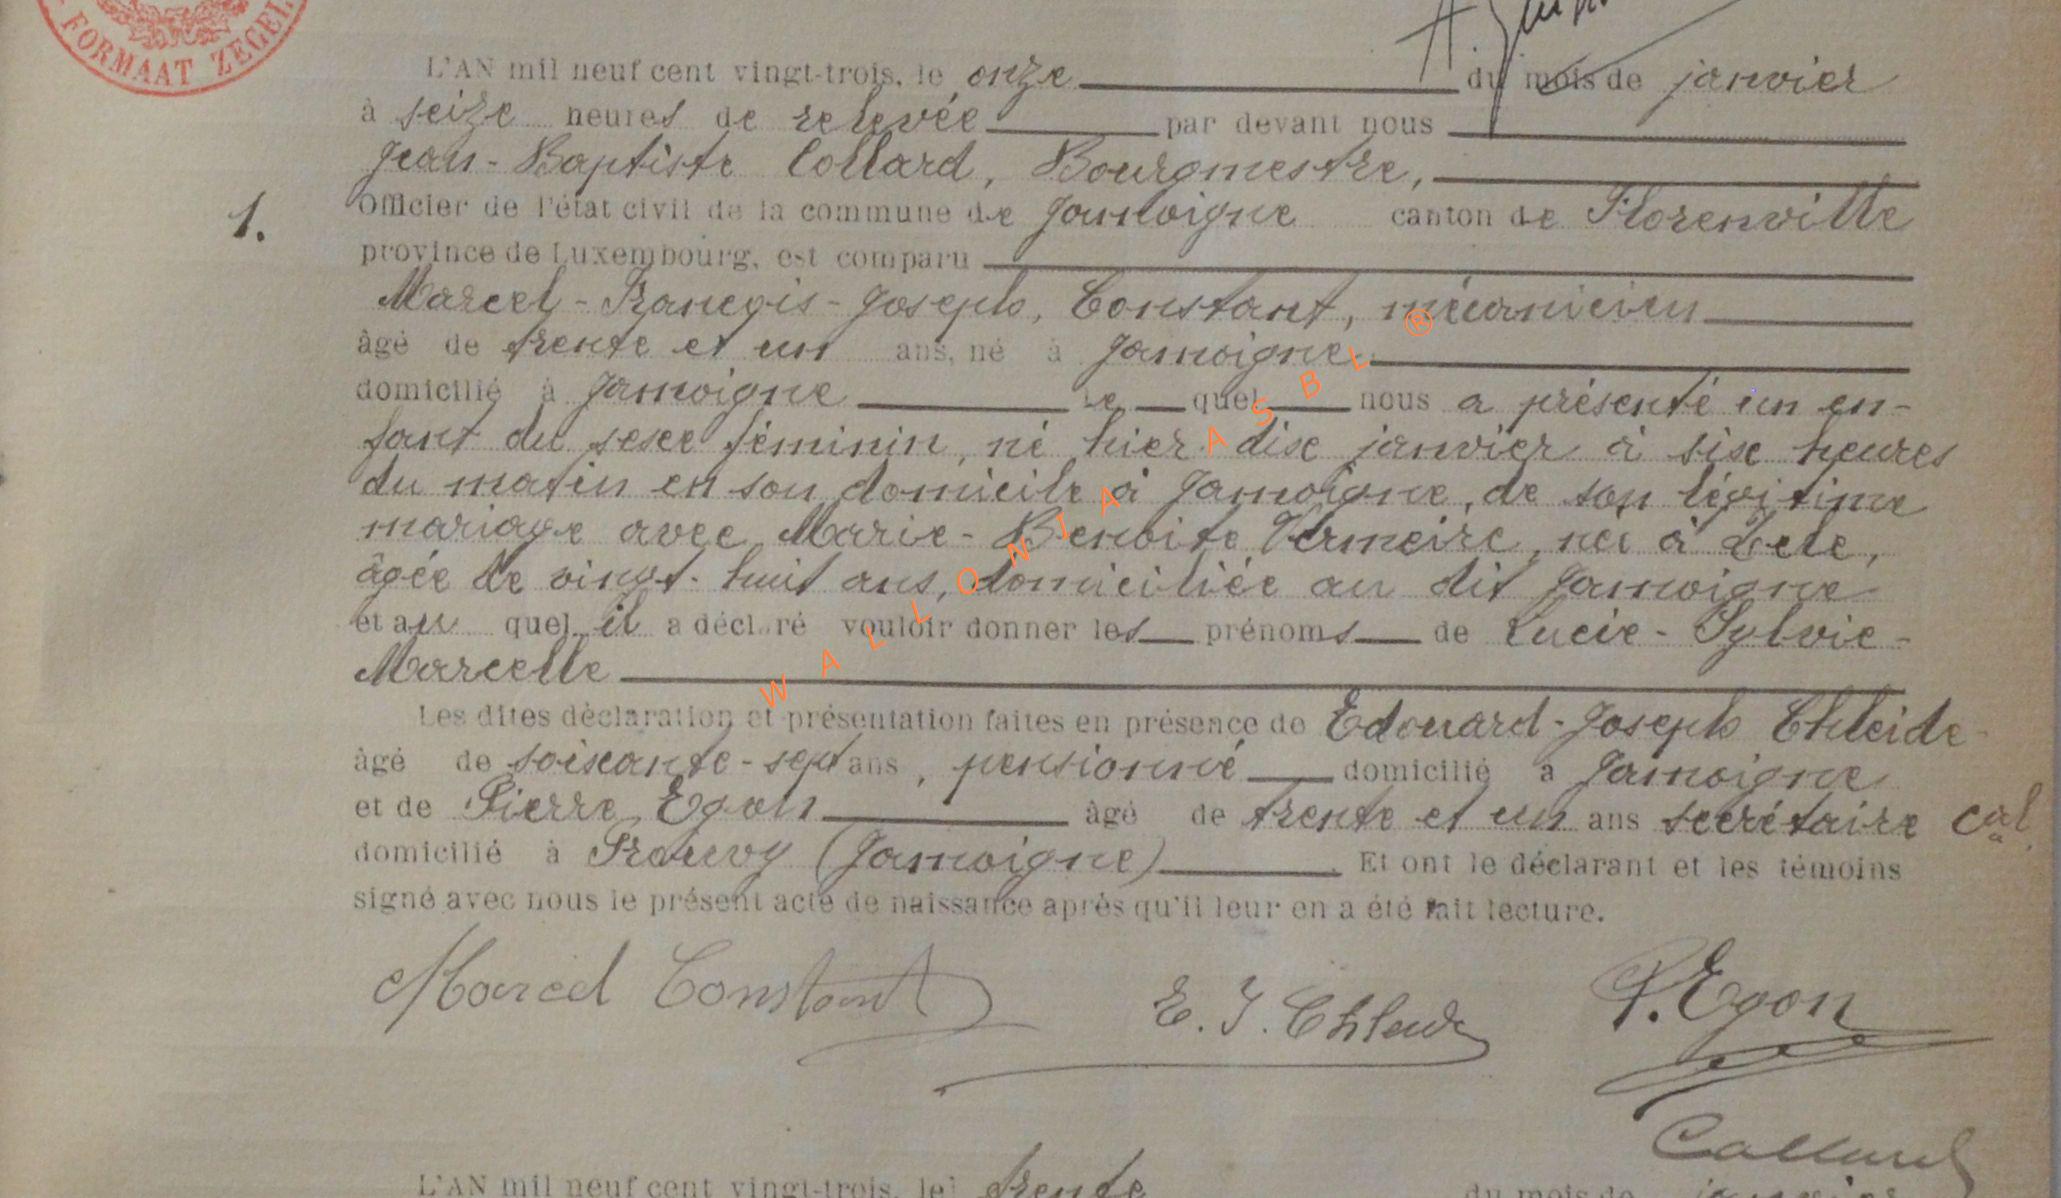 FORMAAT ZEGEL
L'AN mil neuf cent vingt-trois, le onze du mois de janvier
à seize heures de relevée par devant nous
Jean-Baptiste Collard, Bourgmestre,
Officier de l'état civil de la commune de Jamoigne canton de Florenville
1.
province de Luxembourg, est comparu
Marcel-François-Joseph, Constant, mécanicien
âgé de trente et un ans, né à Jamoigne
domicilié à Jamoigne le quel nous a présenté un en-
fant du sexe féminin, né hier dix janvier à six heures
du matin en son domicile à Jamoigne, de son légitime
mariage avec Marie-Benoite Vermeire, née à Zele,
âgée de vingt-huit ans, domiciliée au dit Jamoigne
et au quel il a déclaré vouloir donner les prénoms de Lucie-Sylvie-
Marcelle
Les dites déclaration et présentation faites en présence de Edouard-Joseph Chleide
âgé de soixante-sept ans, pensionné domicilié à Jamoigne
et de Pierre Egon âgé de trente et un ans secrétaire cal
domicilié à Prouvy (Jamoigne). Et ont le déclarant et les témoins
signé avec nous le présent acte de naissance après qu'il leur en a été fait lecture.
Marcel Constant
E. J. Chleide
P. Egon
Collard
L'AN mil neuf cent vingt-trois, le trente du mois de janvier
WALLONIA ASBL ®